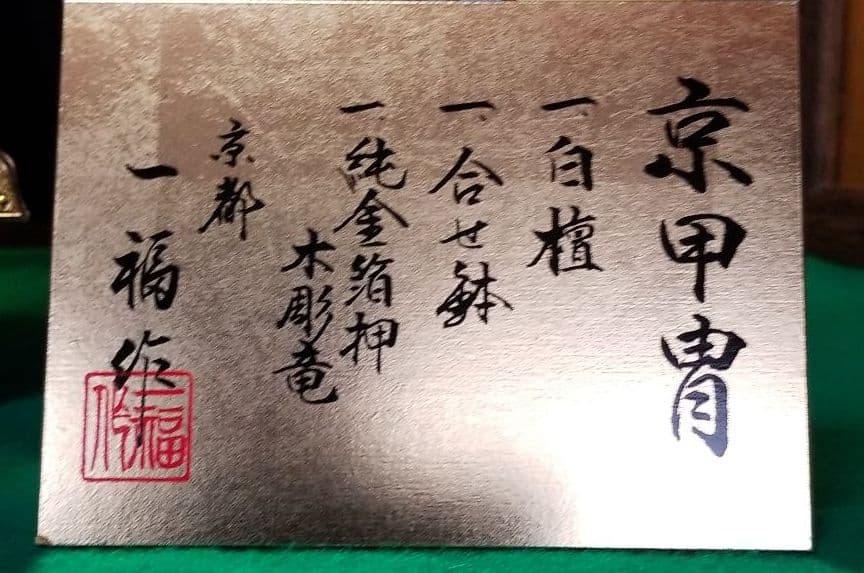 京甲冑
一、白檀
一、合せ鉢
一、純金箔押
木彫竜
京都
一福作
一福作